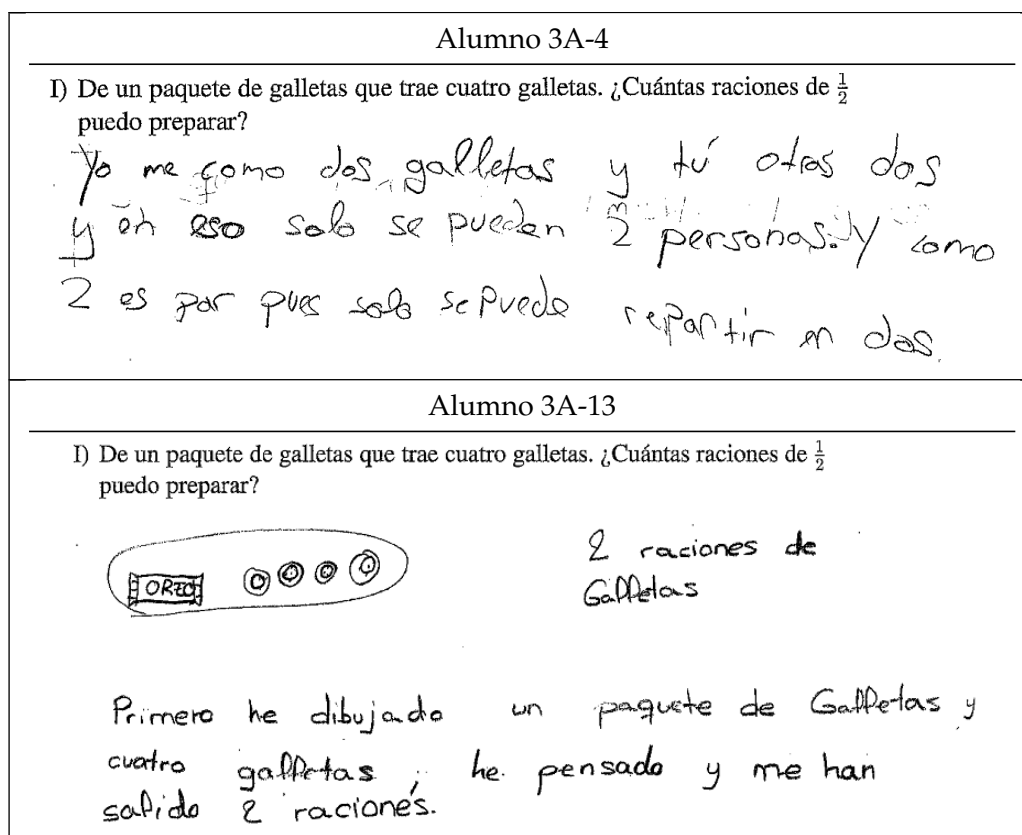 Alumno 3A-4
I) De un paquete de galletas que trae cuatro galletas. ¿Cuántas raciones de 1/2
puedo preparar?
Yo me como dos galletas y tú otras dos
y en eso solo se pueden 2 personas. Y como
2 es par pues solo se puede repartir en dos.
Alumno 3A-13
I) De un paquete de galletas que trae cuatro galletas. ¿Cuántas raciones de 1/2
puedo preparar?
2 raciones de
Galletas
Primero he dibujado un paquete de Galletas y
cuatro galletas, he pensado y me han
salido 2 raciones.